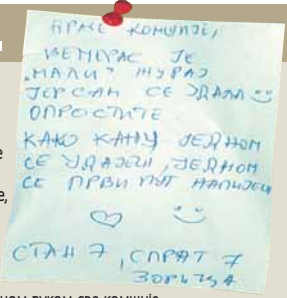 ДРАГЕ КОМШИЈЕ,
ВЕЧЕРАС ЈЕ
„МАЛИ“ ЖУРАЈ
ЈЕР САМ СЕ УДАЛА
ОПРОСТИТЕ
КАКО КАЖУ ЈЕДНОМ
СЕ УДАЈЕШ, ЈЕДНОМ
СЕ ПРВИ ПУТ НАПИЈЕШ
СТАН 7, СПРАТ 7
ЗОРИЦА